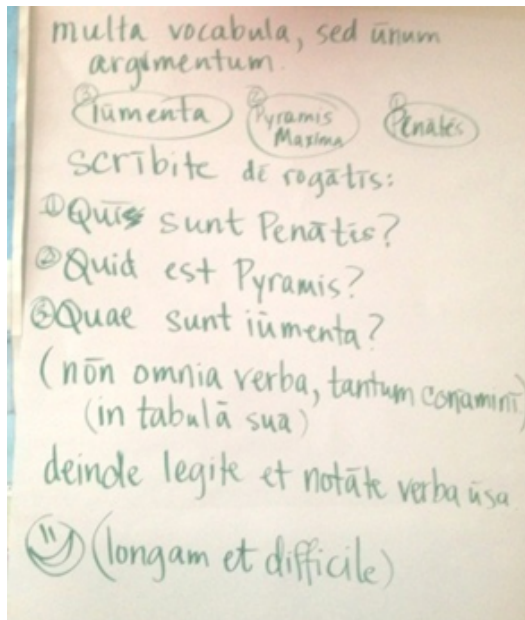 multa vocabula, sed ūnum
argumentum.
③ iūmenta ② Pyramis Maxima ① Penātēs
scrībite dē rogātīs:
① Quis sunt Penātis?
② Quid est Pyramis?
③ Quae sunt iūmenta?
(nōn omnia verba, tantum conāminī)
(in tabulā sua)
deinde legite et notāte verba ūsa
(longam et difficile)